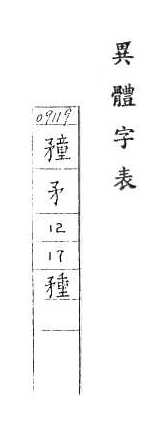 異體字表
09119
矛
12
17